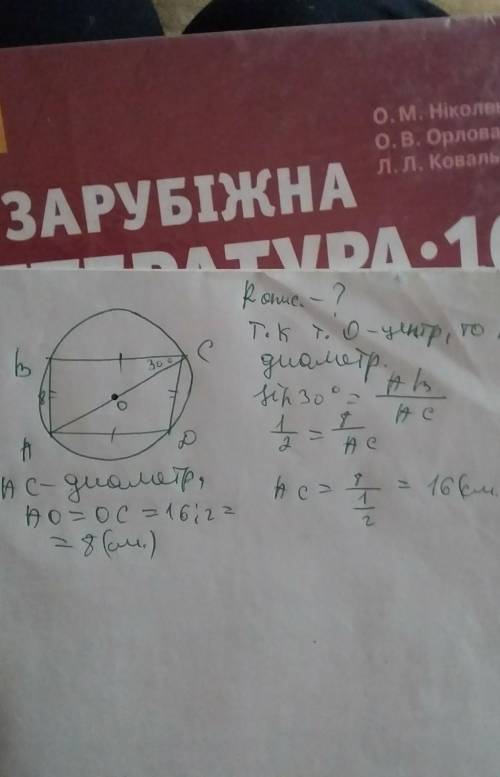 О. М. Ніколен
О. В. Орлова
Л. Л. Коваль
ЗАРУБІЖНА
ЛІТЕРАТУРА·10
R опис. - ?
т.к т. О - центр, то
диаметр.
sin 30° = AB/AC
1/2 = 8/AC
AC = 8/(1/2) = 16 (см.
B
30°
C
8
O
A
D
AC - диаметр,
AO = OC = 16:2 =
= 8 (см.)